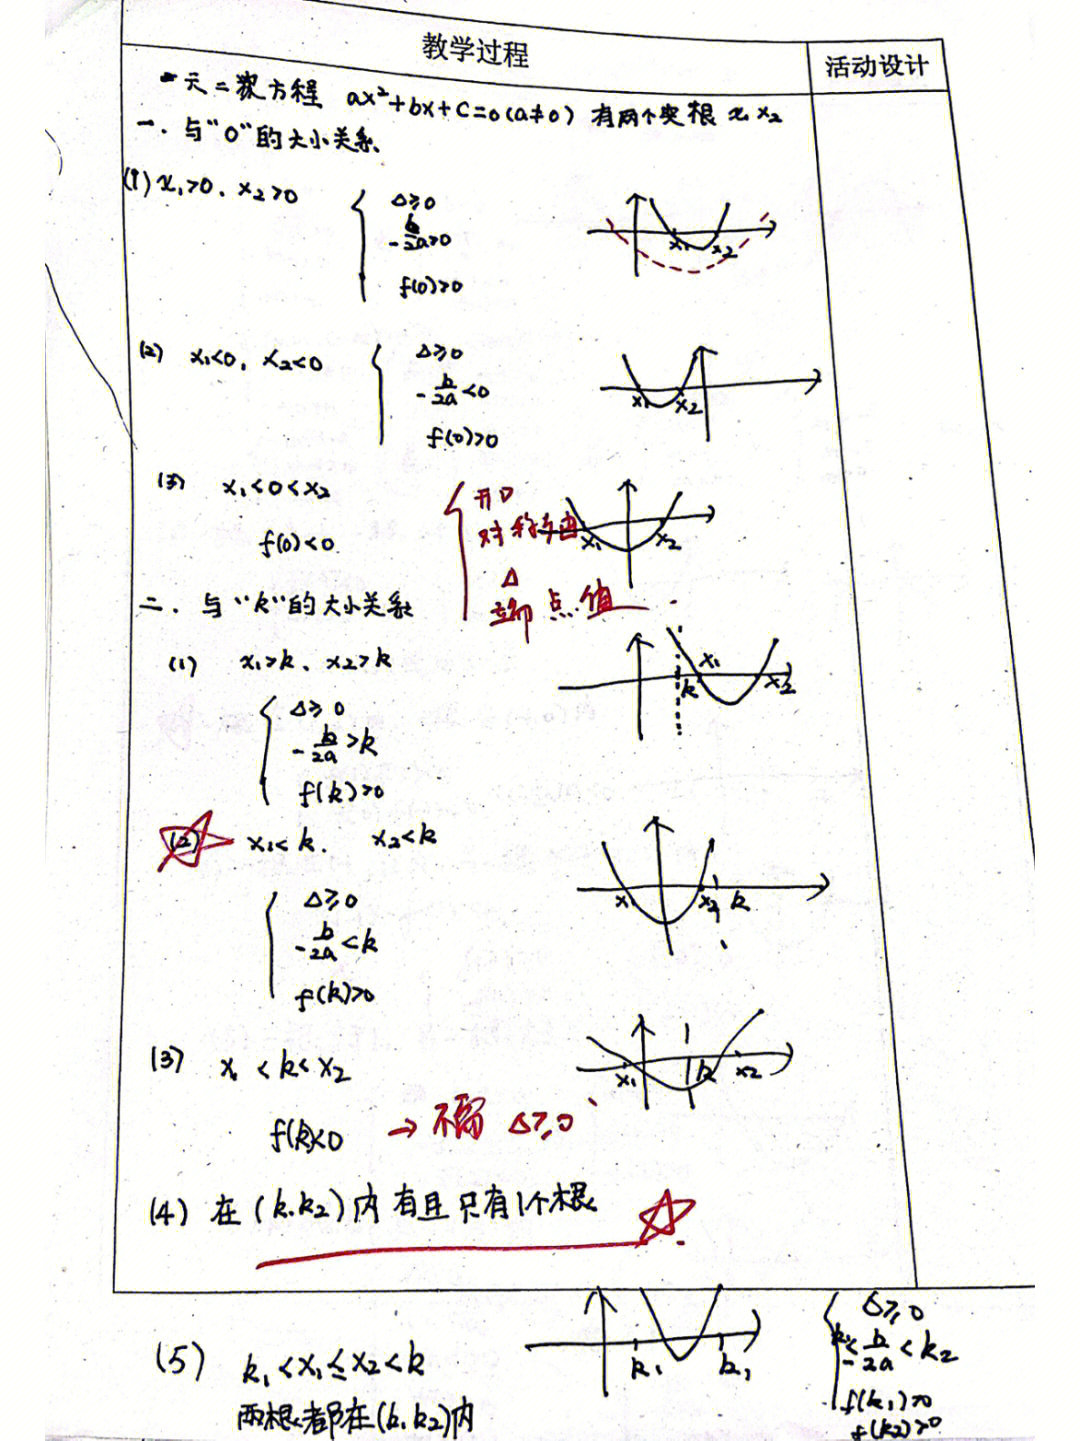 教学过程
活动设计
一元二次方程 ax²+bx+c=0(a≠0) 有两个实根 x₁ x₂
一、与"0"的大小关系
(1) x₁>0、x₂>0
Δ≥0
-b/2a>0
f(0)>0
x₁ x₂
(2) x₁<0, x₂<0
Δ≥0
-b/2a<0
f(0)>0
x₁ x₂
(3) x₁<0<x₂
f(0)<0
开口
对称轴
Δ
端点值
x₁ x₂
二、与"k"的大小关系
(1) x₁>k、x₂>k
Δ≥0
-b/2a>k
f(k)>0
k x₁ x₂
(2) x₁<k. x₂<k
Δ≥0
-b/2a<k
f(k)>0
x₁ x₂ k
(3) x₁<k<x₂
f(k)<0 → 不需 Δ≥0
x₁ k x₂
(4) 在(k.k₂)内有且只有1个根
(5) k₁<x₁≤x₂<k
两根都在(k.k₂)内
k₁ k₁
Δ≥0
k₁<-b/2a<k₂
f(k₁)>0
f(k₂)>0